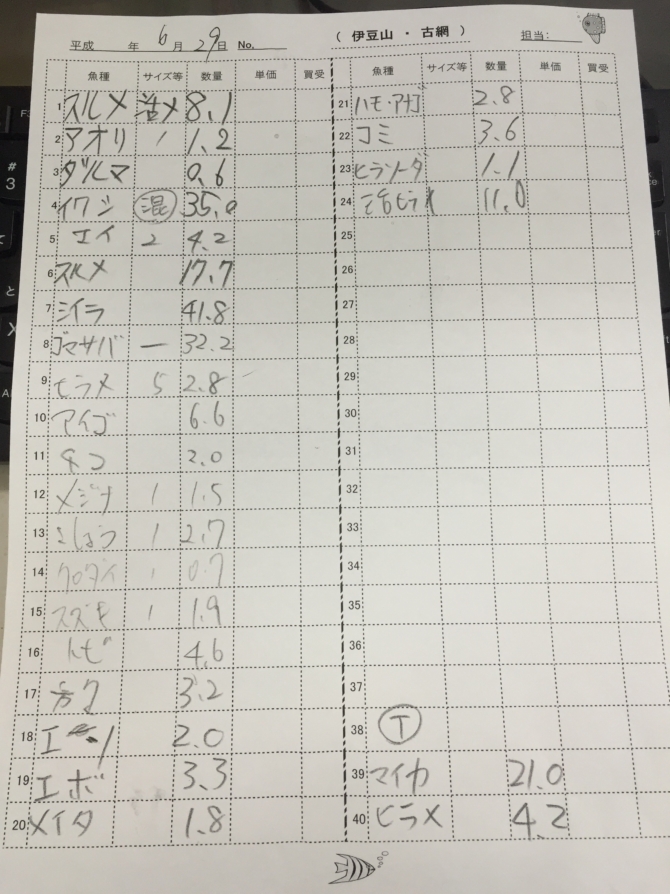 平成 年 6 月 29 日 No. ( 伊豆山 ・ 古網 ) 担当:
魚種 サイズ等 数量 単価 買受
1 スルメ 活〆 8.1
2 アオリ 1 1.2
3 ダルマ 0.6
4 イワシ 混 35.0
5 エイ 2 4.2
6 スルメ 17.7
7 シイラ 41.8
8 ゴマサバ 一 32.2
9 ヒラメ 5 2.8
10 アイゴ 6.6
11 タコ 2.0
12 メジナ 1 1.5
13 さしょう 1 2.7
14 クロダイ 1 0.7
15 スズキ 1 1.9
16 トビ 4.6
17 3.2
18 2.0
19 エボ 3.3
20 メイタ 1.8
魚種 サイズ等 数量 単価 買受
21 ハモ・アナゴ 2.8
22 コミ 3.6
23 ヒラソーダ 1.1
24 活ヒラメ 11.0
25
26
27
28
29
30
31
32
33
34
35
36
37
38 T
39 マイカ 21.0
40 ヒラメ 4.2